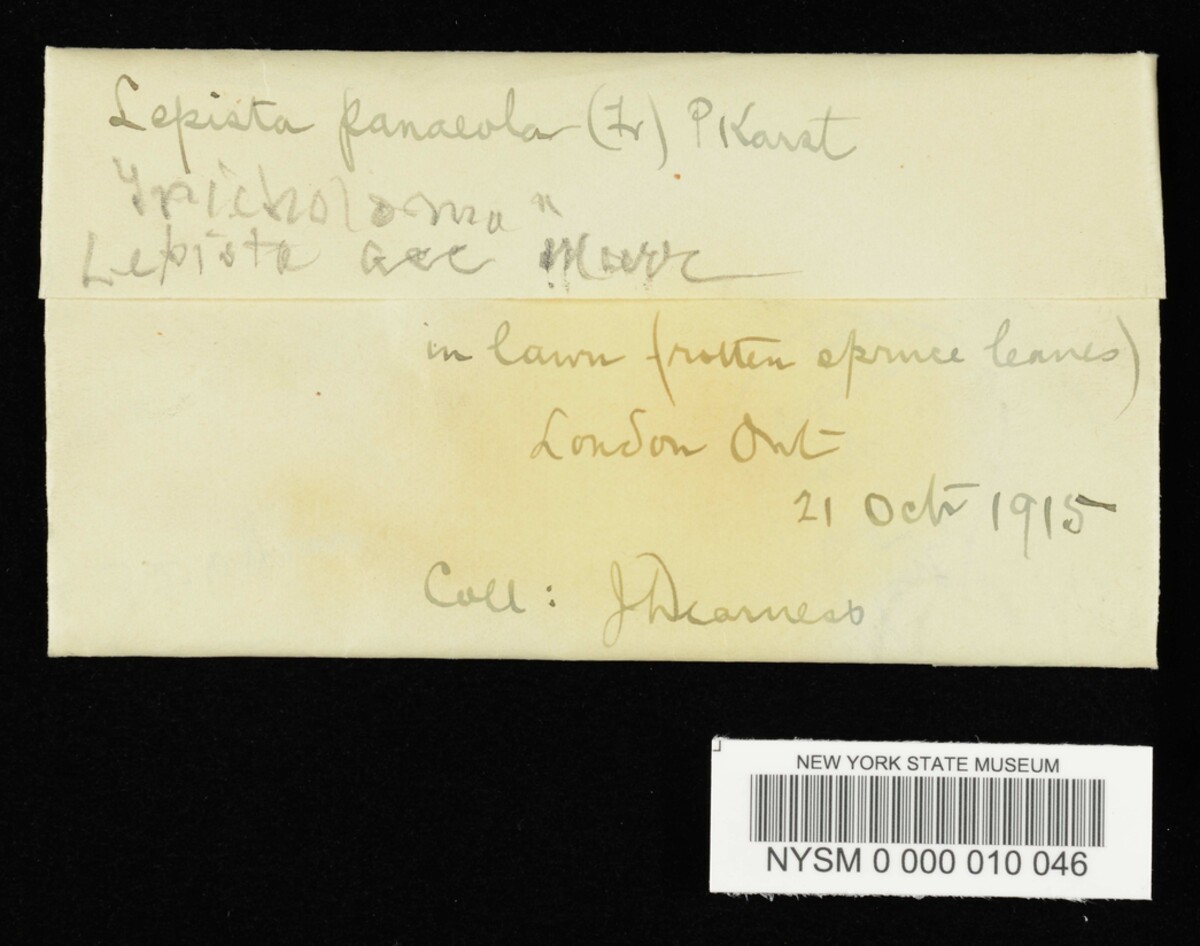 Lepista panaeola (Fr) P Karst
Tricholoma "
Lepista acc Murr
in lawn (rotten spruce leaves)
London Ont
21 Octr 1915
Coll: J Dearness
NEW YORK STATE MUSEUM
NYSM 0 000 010 046